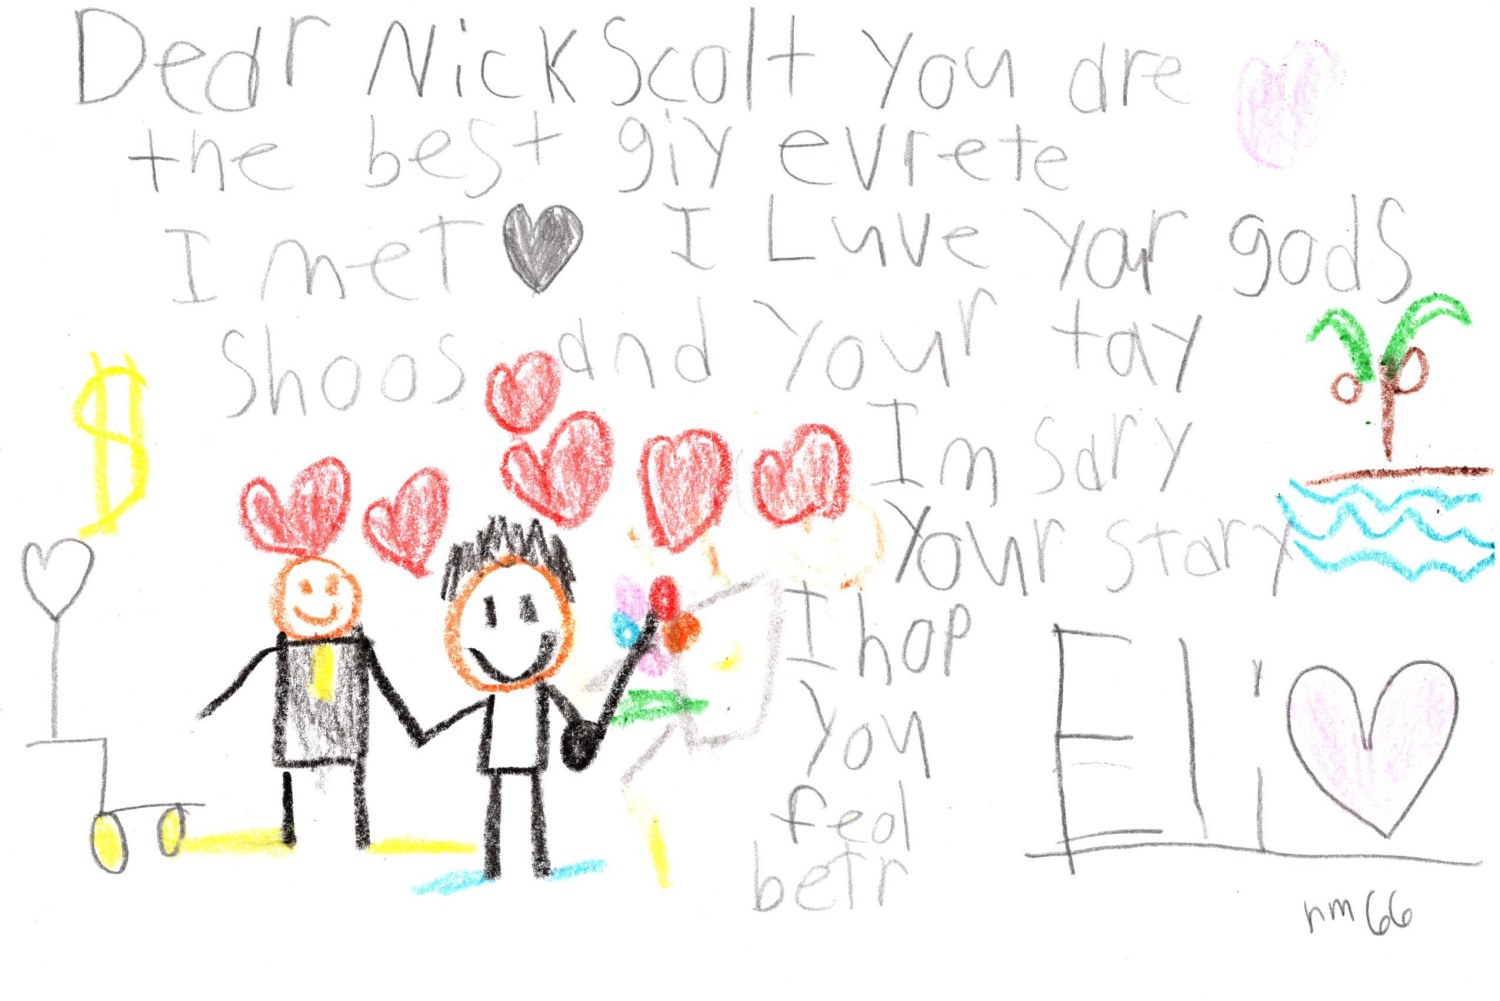 Dear Nick Scolt you are
the best giy evrete
I met
I Luve your gods
shoos and your tay
I m sary
your stary
I hop
you
feol
betr
Eli
rm 66
$